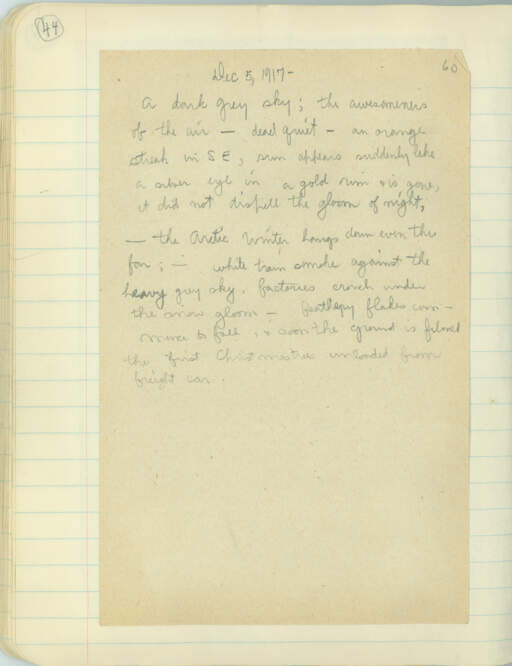 44
60
Dec 5, 1917-
A dark grey sky; the awesomeness
of the air — dead quiet — an orange
streak in SE, sun appears suddenly like
a silver eye in a gold rim & is gone,
it did not dispell the gloom of night,
— the Arctic Winter hangs down even this
far; — white train smoke against the
heavy grey sky. factories crouch under
the snow gloom — feathery flakes com-
mence to fall & soon the ground is filmed
the first Christmastree unloaded from
freight car.